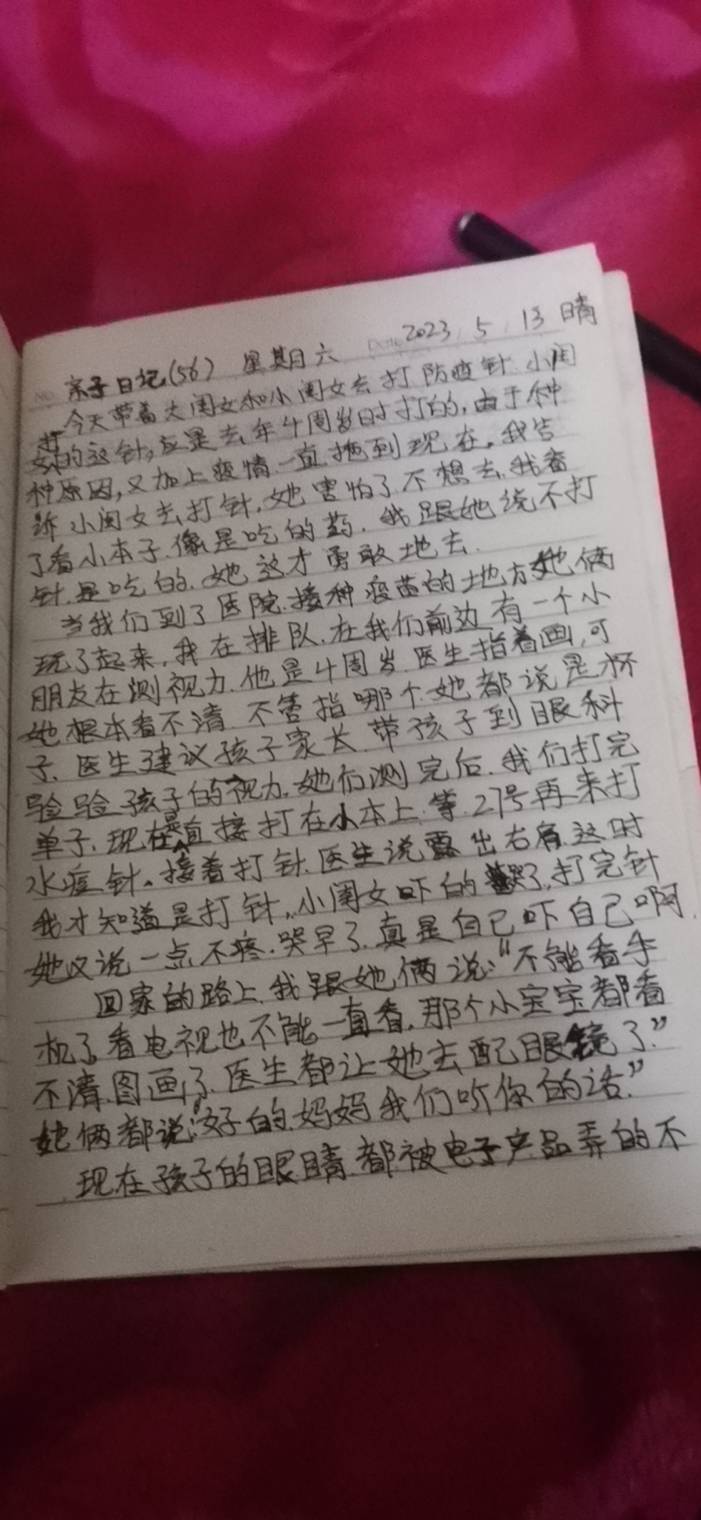 亲子日记(56) 星期六 2023 5 13 晴
今天带着大闺女和小闺女去打防疫针.小闺
女打的这针,应是去年4周岁时打的,由于种
种原因,又加上疫情一直拖到现在。我告
诉小闺女去打针,她害怕了.不想去.我看
了看小本子.像是吃的药.我跟她说不打
针.是吃的.她这才勇敢地去.
当我们到了医院.接种疫苗的地方她俩
玩了起来,我在排队.在我们前边有一个小
朋友在测视力.他是4周岁.医生指着画,可
她根本看不清.不管指哪个.她都说是杯
子.医生建议孩子家长.带孩子到眼科
验验孩子的视力.她们测完后.我们打完
单子.现在是直接打在小本上.等27号再来打
水痘针。接着打针.医生说露出右肩.这时
我才知道是打针。小闺女吓的哭了.打完针
她又说一点不疼.哭早了.真是自己吓自己啊.
回家的路上.我跟她俩说:“不能看手
机了.看电视也不能一直看.那个小宝宝都看
不清.图画了.医生都让她去配眼镜了.”
她俩都说:“好的.妈妈我们听你的话.”
现在孩子的眼睛.都被电子产品弄的不